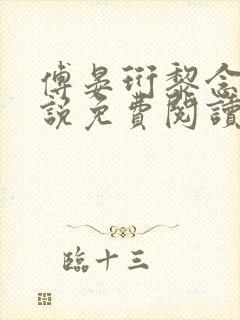 傅晏珩黎念
說免費閱讀
臨十三